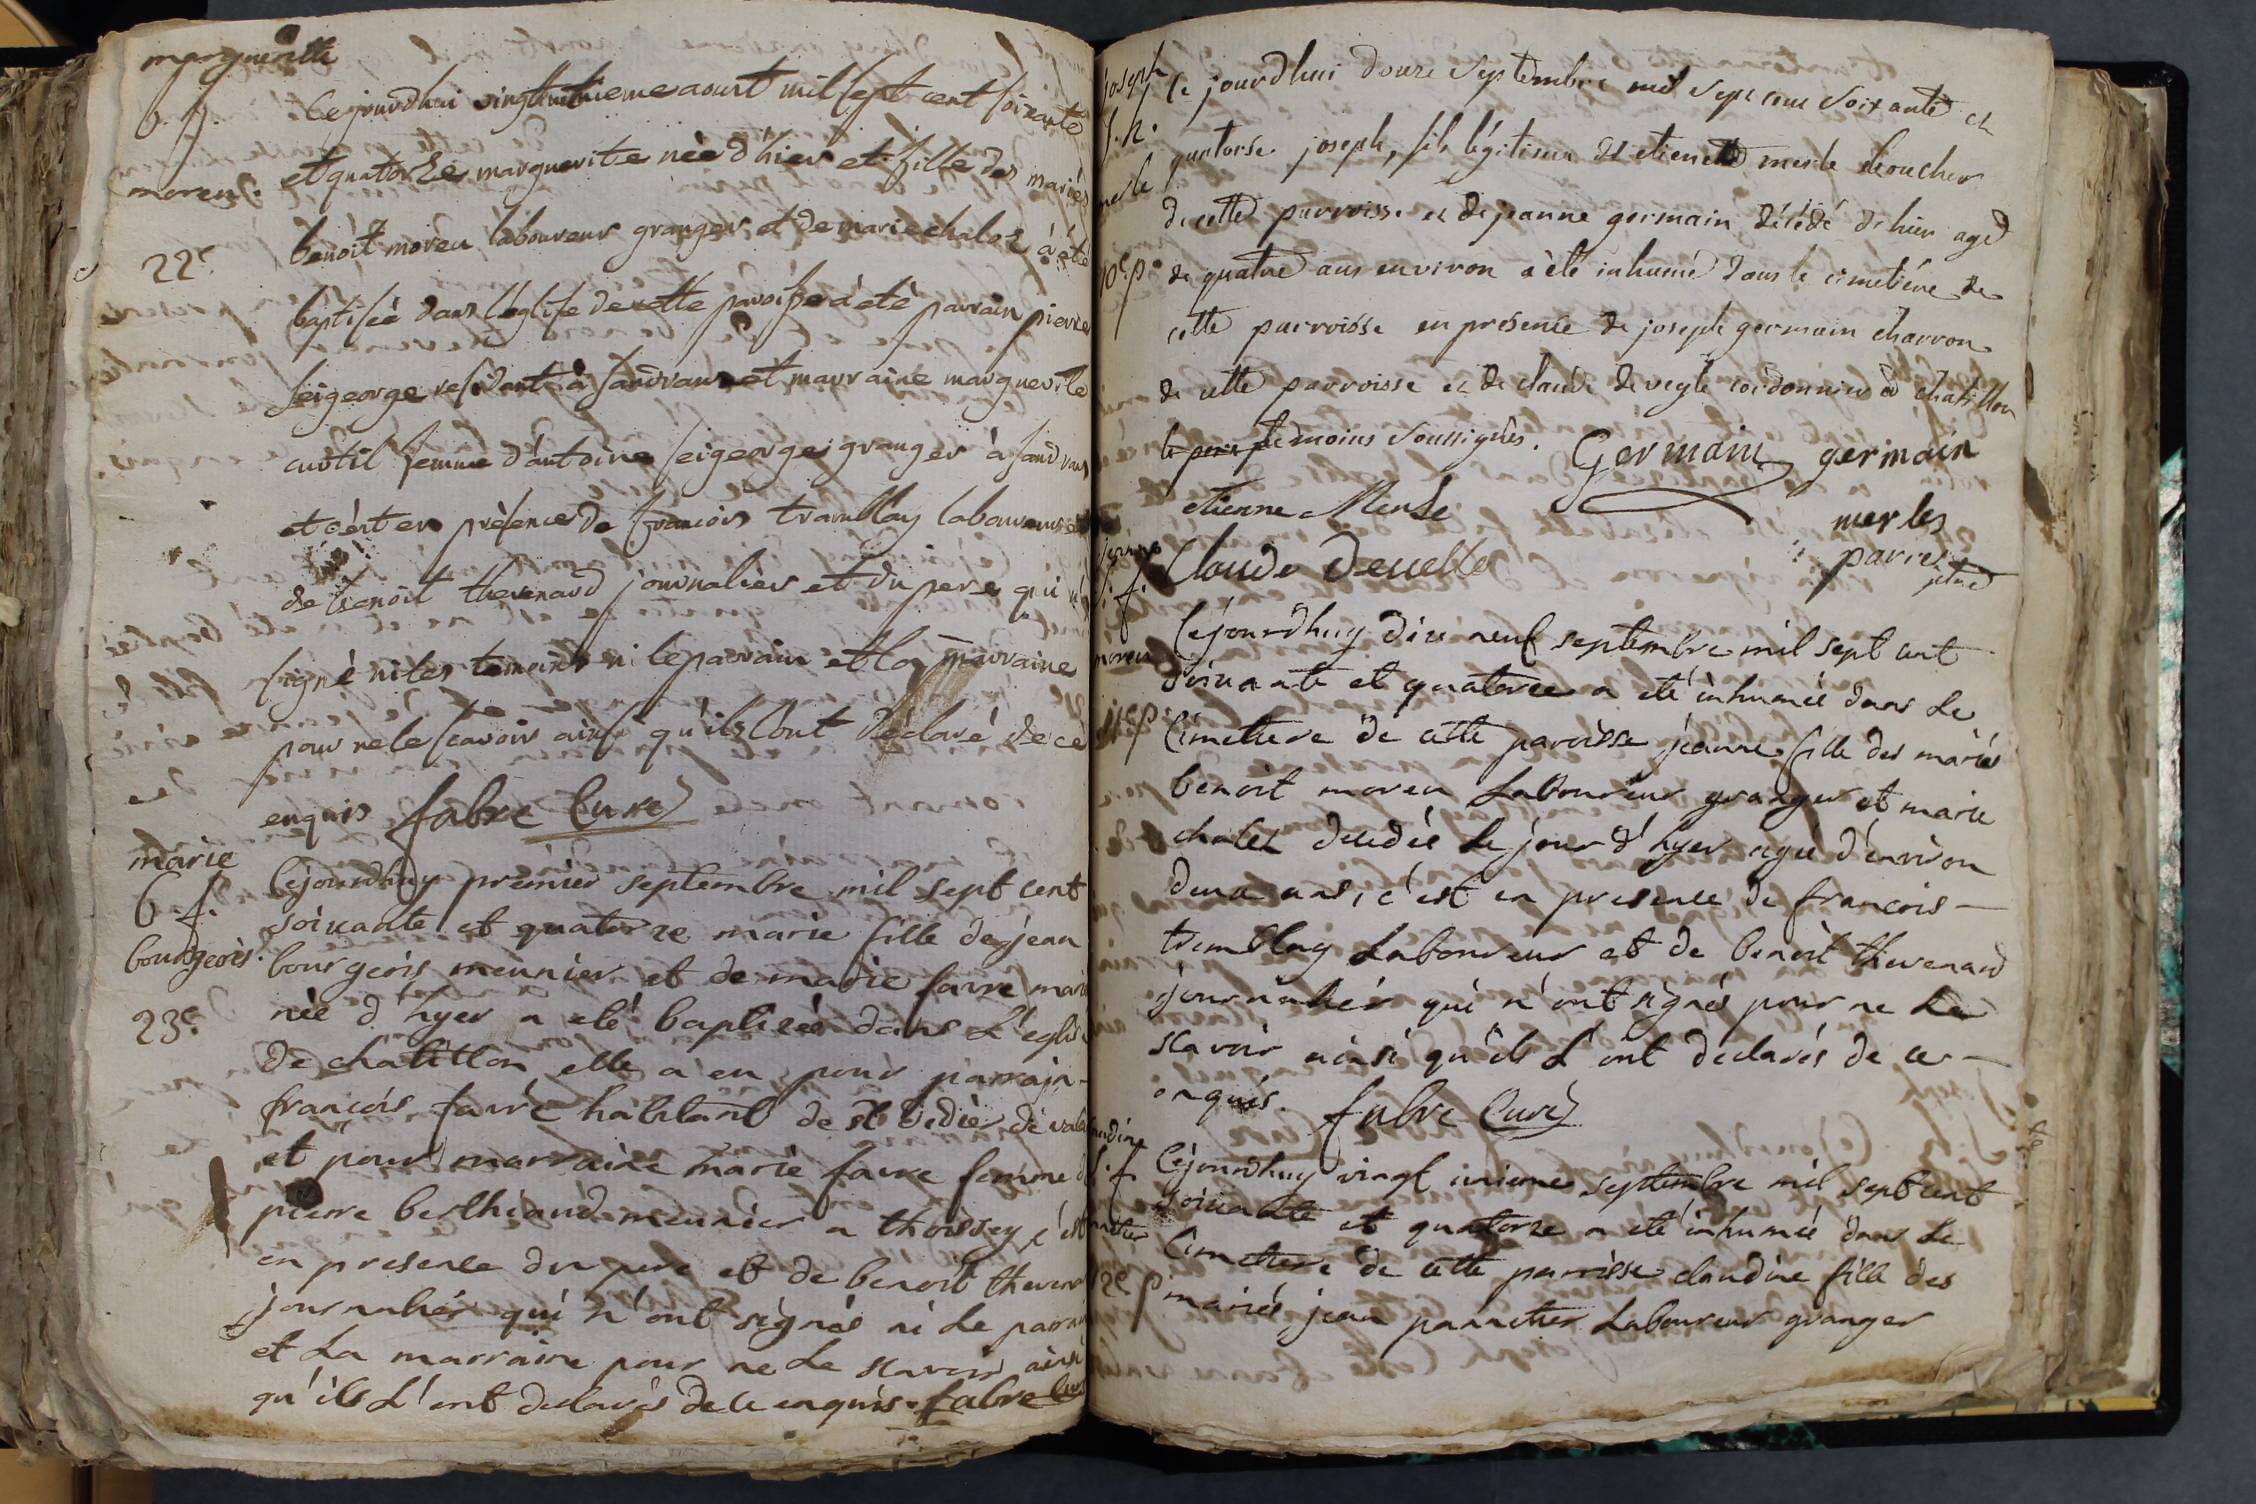 marguerite
b. f.
moreu.
22e.
Cejourdhui vingthuitieme aoust mil sept cent soixante
et quatorze marguerite neè d'hier et fille des mariès
benoit moreu laboureur granger et de marie chalet à été
baptiseè dans l'eglise de cette paroisse à etè parrain pierre
seigeorge residant à sandrans et marraine marguerite
curtil femme d'antoine seigeorge granger à sandrans
et c'est en prèsence de francois tramblay laboureur et
de benoit thevenard journalier et du pere qui n'
signé ni les temoins ni le parrain et la marraine
pour ne le scavoir ainsi qu'ils l'ont déclaré de ce
enquis fabre Curé
marie
b. f.
bourgeois.
23e.
Cejourdhuy premier septembre mil sept cent
soixante et quatorze marie fille de jean
bourgeois meunier et de marie favre mari
née d'hyer a eté baptisée dans L'eglise
de chatillon elle a eu pour parrain
françois favre habitant de st didier de vala
et pour marraine marie favre femme d
pierre berthiaud meunier a thoissey c'est
en presence du pere et de benoit theven
journalier qui n'ont signés ni Le parrai
et La marraine pour ne Le scavoir ainsi
qu'ils L'ont declarés de ce enquis. fabre Curé
joseph
f. h.
merle
10e. p.
Ce jourd'hui douze septembre mil sept cent soixante et
quatorse joseph, fils légitime d'etienne merle boucher
de cette parroisse et de jeanne germain décédé d'hier agé
de quatre ans environ a été inhumé dans le cimetiére de
cette parroisse en présence de joseph germain charron
de cette parroisse et de claude devegle cordonnier a chatillon
le pere temoins soussignés. Germain germain
etienne Merle merles
Claude Develle parrei
jeanne
f. f.
moreu
11e p.
Cejourdhuy dix neuf septembre mil sept cent
soixante et quatorze a eté inhumée dans Le
Cimetiere de cette paroisse jeanne fille des mariés
benoit moreu Laboureur granger et marie
chalet decedée Le jour d'hyer agée d'environ
deux ans, c'est en presence de francois
tremblay Laboureur et de benoit thevenard
journalier qui n'ont signés pour ne Le
scavoir ainsi qu'ils L'ont declarés de ce
enquis. fabre Curé
audine
f. f.
12e p.
Cejourdhuy vingt unieme septembre mil sept cent
soixante et quatorze a eté inhumée dans Le
Cimetiere de cette parroisse claudine fille des
mariés jean pannetier Laboureur granger